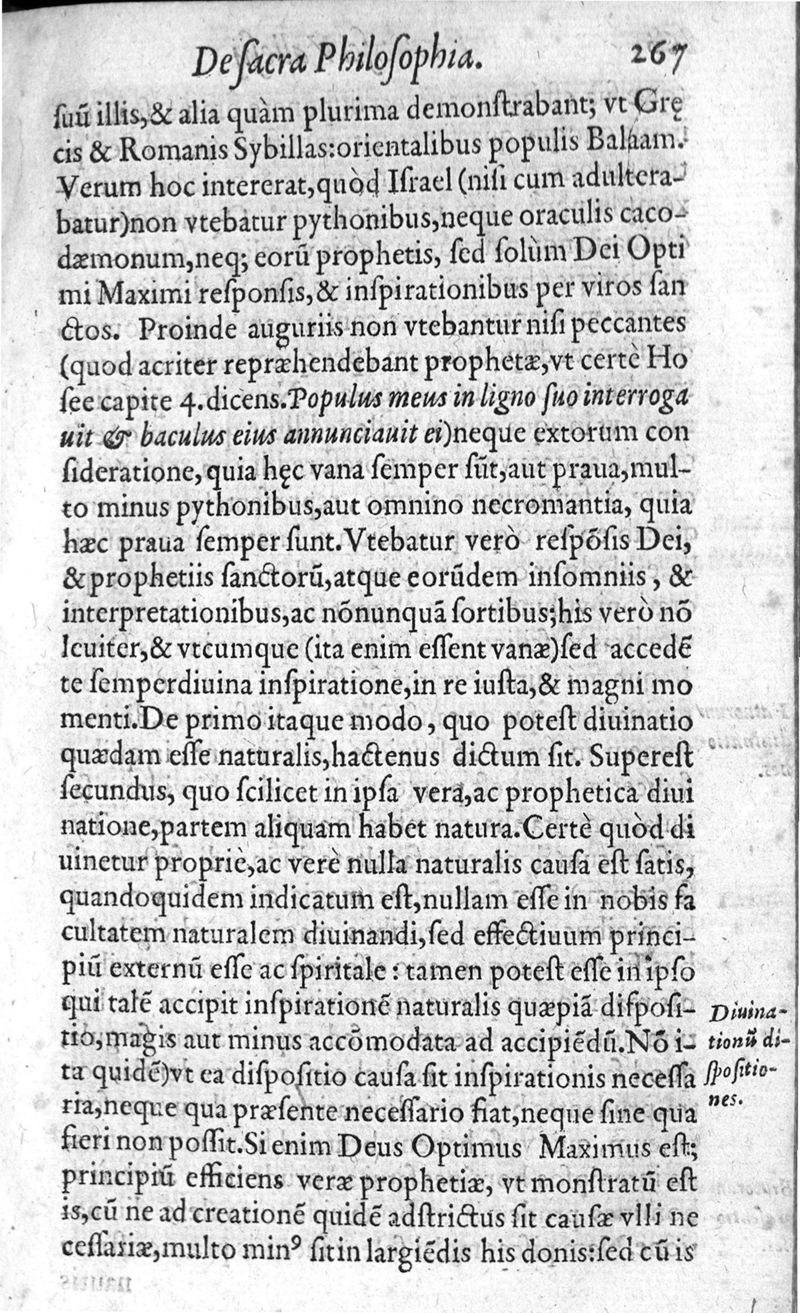 De sacra Philoſophia. 267
ſuũ illis,& alia quàm plurima demonſtrabant; vt Grę
cis & Romanis Sybillas:orientalibus populis Balaam.
Verum hoc intererat,quòd Iſrael (niſi cum adultera-
batur)non vtebatur pythonibus,neque oraculis caco-
dæmonum,neq; eorũ prophetis, ſed ſolùm Dei Opti
mi Maximi reſponſis,& inſpirationibus per viros ſan
ctos. Proinde auguriis non vtebantur niſi peccantes
(quod acriter repræhendebant prophetæ,vt certè Ho
ſee capite 4.dicens.Populus meus in ligno ſuo interroga
uit & baculus eius annunciauit ei)neque extorum con
ſideratione,quia hęc vana ſemper ſũt,aut praua,mul-
to minus pythonibus,aut omnino necromantia, quia
hæc praua ſemper ſunt.Vtebatur verò reſpõſis Dei,
& prophetiis ſanctorũ,atque eorũdem inſomniis, &
interpretationibus,ac nõnunquã ſortibus;his verò nõ
leuiter,& vtcumque (ita enim eſſent vanæ)ſed accedẽ
te ſemper diuina inſpiratione,in re iuſta,& magni mo
menti.De primo itaque modo, quo poteſt diuinatio
quædam eſſe naturalis,hactenus dictum ſit. Supereſt
ſecundus, quo ſcilicet in ipſa vera,ac prophetica diui
natione,partem aliquam habet natura.Certè quòd di
uinetur propriè,ac verè nulla naturalis cauſa eſt ſatis,
quandoquidem indicatum eſt,nullam eſſe in nobis fa
cultatem naturalem diuinandi,ſed effectiuum princi-
piũ externũ eſſe ac ſpiritale: tamen poteſt eſſe in ipſo
qui talẽ accipit inſpirationẽ naturalis quæpiã diſpoſi-
tio,magis aut minus accõmodata ad accipiẽdũ.Nõ i-
ta quidẽ)vt ea diſpoſitio cauſa ſit inſpirationis neceſſa
ria,neque qua præſente neceſſario fiat,neque ſine qua
fieri non poſſit.Si enim Deus Optimus Maximus eſt;
principiũ efficiens veræ prophetiæ, vt monſtratũ eſt
is,cũ ne ad creationẽ quidẽ adſtrictus ſit cauſæ vlli ne
ceſſariæ,multo minꝰ ſit in largiẽdis his donis:ſed cũ is
Diuina-
tionũ di-
ſpoſitio-
nes.